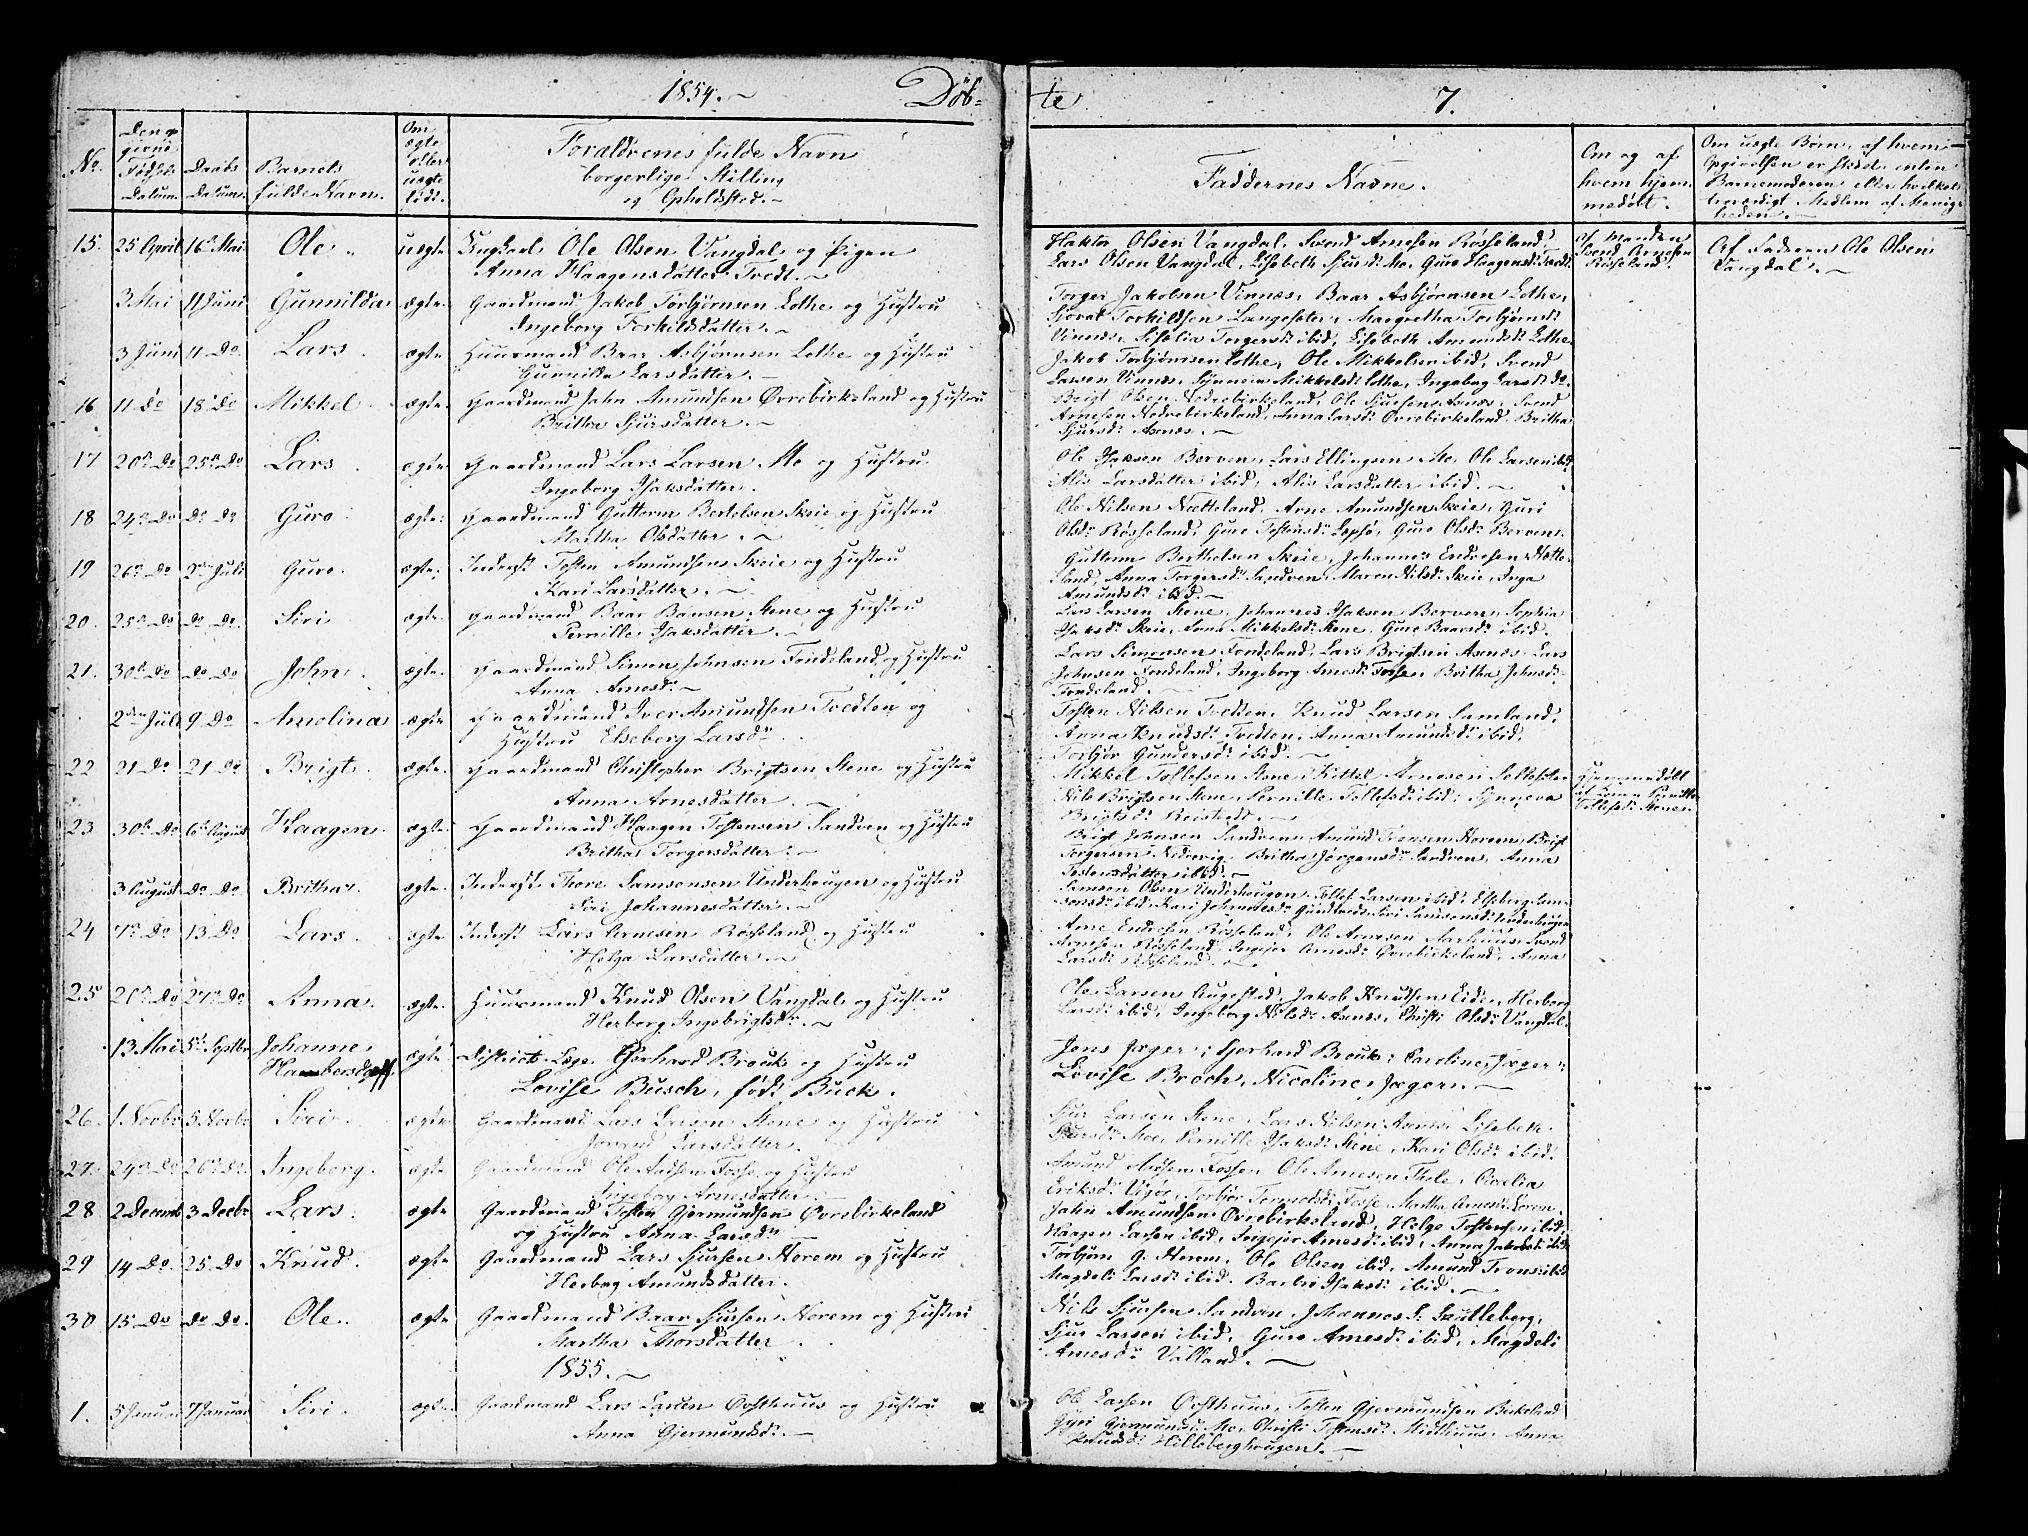 1854. Döb-
te 7.
No.
Den op
givne
Fødsels
Datum.
Daabs
Datum.
Barnets
fulde Navn.
Om
ægte
eller
uægte
født.
Forældrenes fulde Navn
borgerlige Stilling
og Opholdsted.
Faddernes Navne.
Om og af
hvem hjem-
medøbt.
Om uægte Børn, af hvem
Opgivelsen er skeet, enten
Barnemoderen eller hvilket
troværdigt Medlem af Menig-
heden.
15. 25 April 16de Mai Ole uægte Ungkarl Ole Olsen Vangdal og Pigen
Anna Haagensdatter Tvedt.
Haktor Olsen Vangdal, Svend Arnesen Røsseland,
Lars Olsen Vangdal, Lisebeth Sjursd: Mo, Guro Haagensd: Tvedt.
af Manden
Svend Arnesen
Røsseland.
Af Faderen Ole Olsen
Vangdal.
3 Mai 11 Juni Gunnilda ægte Gaardmand Jakob Torbjørnsen Lothe og Hustru
Ingeborg Torkildsdatter.
Torger Jakobsen Vinnæs, Baar Asbjørnsen Lothe,
Sjovat Torkildsen Langeseter, Margretha Torbjørnsd:
Vinnæs, Siselia Torgersd: ibid, Lisebeth Amundsd: Lothe.
3 Juni 11 Do. Lars ægte Huusmand Baar Asbjørnsen Lothe og Hustru
Gunnilda Larsdatter.
Jakob Torbjørnsen Lothe, Ole Mikkelsen ibid, Svend
Larsen Vinnæs, Synneva Mikkelsd: Lothe, Ingeborg Larsd: do.
16 11 Do 18 Do Mikkel ægte Gaardmand John Amundsen Øvrebirkeland og Hustru
Britha Sjursdatter.
Brigt Olsen Nedrebirkeland, Ole Sjursen Axnæs, Svend
Arnesen Nedrebirkeland, Anna Larsd: Øvrebirkeland, Britha
Sjursd: Axnæs.
17 20de Do 25de Do Lars ægte Gaardmand Lars Larsen Mo og Hustru
Ingeborg Isaksdatter.
Ole Isaksen Berven, Lars Ellingsen Mo, Ole Larsen ibid
Alis Larsdatter ibid, Alis Larsdatter ibid.
18 24de Do Do Do Guro ægte Gaardmand Guttorm Bertelsen Skeie og Hustru
Martha Olsdatter.
Ole Nilsen Netteland, Arne Amundsen Skeie, Guri
Olsd: Røsseland, Guro Tostensd: Lepsø, Guro Olsd: Berven.
19 26de Do 2den Juli Guro ægte Inderst Tosten Amundsen Skeie og Hustru
Kari Larsdatter.
Guttorm Berthelsen Skeie, Johannes Endresen Nette-
land, Anna Torgersd: Sandven, Maren Nilsd: Skeie, Inga
Amundsd: ibid.
20. 25de Do Do Do. Siri ægte Gaardmand Baar Baarsen Stene og Hustru
Pernille Isaksdatter.
Lars Larsen Stene, Johannes Isaksen Berven, Sophia
Isaksd: Skeie, Anna Mikkelsd: Stene, Guro Baarsd: ibid.
21. 30te Do Do Do John ægte Gaardmand Simon Johnsen Fondeland og Hustru
Anna Arnesd:
Lars Simonsen Fondeland, Lars Brigtsen Axnæs, Lars
Johnsen Fondeland, Ingeborg Arnesd: Fosse, Britha Johnsd:
Fondeland.
2den Juli 9 Do Amolina ægte Gaardmand Iver Amundsen Tvedten og
Hustru Elseborg Larsd:
Tosten Nilsen Tvedten, Knud Larsen Samland,
Anna Knudsd: Tvedten, Anna Amundsd: ibid,
Torbjør Gundersd: ibid.
22 21 Do 21 Do Brigt ægte Gaardmand Christopher Brigtsen Stene og Hustru
Anna Arnesdatter.
Mikkel Tollefsen Stene, Kittel Arnesen Solleseter
Nils Brigtsen Stene, Pernille Tollefsd: ibid, Synneva
Brigtsd: Reistedt.
Hjemmedøbt
af Konen Pernille
Tollefsd: Stene.
23 30te Do 6te August Haagen ægte Gaardmand Haagen Tostensen Sandven og Hustru
Britha Torgersdatter.
Brigt Johnsen Sandven, Amund Tronsen Norem, Brigt
Torgersen Nedrevig, Britha Jørgensd: Sandven, Anna
Tostensdatter ibid.
3 August Do Do Britha ægte Inderst Thore Samsonsen Underhougen og Hustru
Siri Johannesdatter.
Samson Olsen Underhougen, Tollef Larsen ibid, Elseberg Sam-
sonsd: ibid, Kari Johannesd: Siri Samsonsd: Underhougen
24 7de Do 13 Do Lars ægte Inderst Lars Arnesen Røsseland og Hustru
Helga Larsdatter.
Arne Endresen Røsseland, Ole Arnesen Aarhuus, Svend
Arnesen Røsseland, Ingejer Arnesd: Øvrebirkeland, Anna
Larsd: Røsseland.
25 20de Do 27de Do Anna ægte Huusmand Knud Olsen Vangdal og Hustru
Herborg Ingebrigtsd:
Ole Larsen Augestad, Jakob Knudsen Eide, Herborg
Larsd: ibid, Ingeborg Nilsd: Axnæs, Christi Olsd: Vangdal.
13 Mai 5te Septbr Johanne
ægte Districts Læge Gerhard Brouk og Hustru
Lovise Busch, født Buck.
Jens Jæger, Gerhard Brouk, Caroline Jæger,
Lovise Broch, Nicoline Jæger.
26 1 Novbr 5 Novbr Siri ægte Gaardmand Lars Larsen Stene og Hustru
Jorand Larsdatter.
Sjur Larsen Stene, Lars Nilsen Axnæs, Lisebeth
Sjursd: Moe, Pernille Isaksd: Stene, Kari Olsd: ibid.
27 24de Do 26 Do. Ingeborg. ægte Gaardmand Ole Aadsen Fosse og Hustru
Ingeborg Arnesdatter.
Amund Aadsen Fosse, Ole Arnesen Thele, Cicelia
Eriksd: Vigør, Torbjør Tormodsd: Fosse, Martha Arnesd: Norem.
28 2 Decemb 3 Decbr Lars. ægte Gaardmand Tosten Gjermundsen Øvrebirkeland
og Hustru Anna Larsd:
John Amundsen Øvrebirkeland, Helge Tostensen ibid,
Haagen Larsen ibid, Ingejer Arnesd: ibid, Anna Jakobsd: ibid
29 14 Do. 25 Do Knud. ægte Gaardmand Lars Sjursen Norem og Hustru
Herborg Amundsdatter.
Torbjørn G. Norem, Ole Olsen ibid, Amund Trons: ibid
Magdeli Larsd: ibid. Barbro Isaksd: ibid.
30 15 Do Do Do. Ole. ægte Gaardmand Baar Sjursen Norem og Hustru
Martha Thorsdatter.
Nils Sjursen Sandven, Johannes S: Skutleberg,
Sjur Larsen ibid, Guro Arnesd: ibid, Magdeli
Arnesd: Valland.
1855.
1. 5 Januar 7 Januar Siri. ægte Gaardmand Lars Larsen Østhuus og Hustru
Anna Gjermundsd:
Ole Larsen Østhuus, Tosten Gjermundsen Birkeland
Gyri Gjermundsd: Mo, Christi Tostensd: Midthuus, Anna
Knudsd: Hilleberghougen.